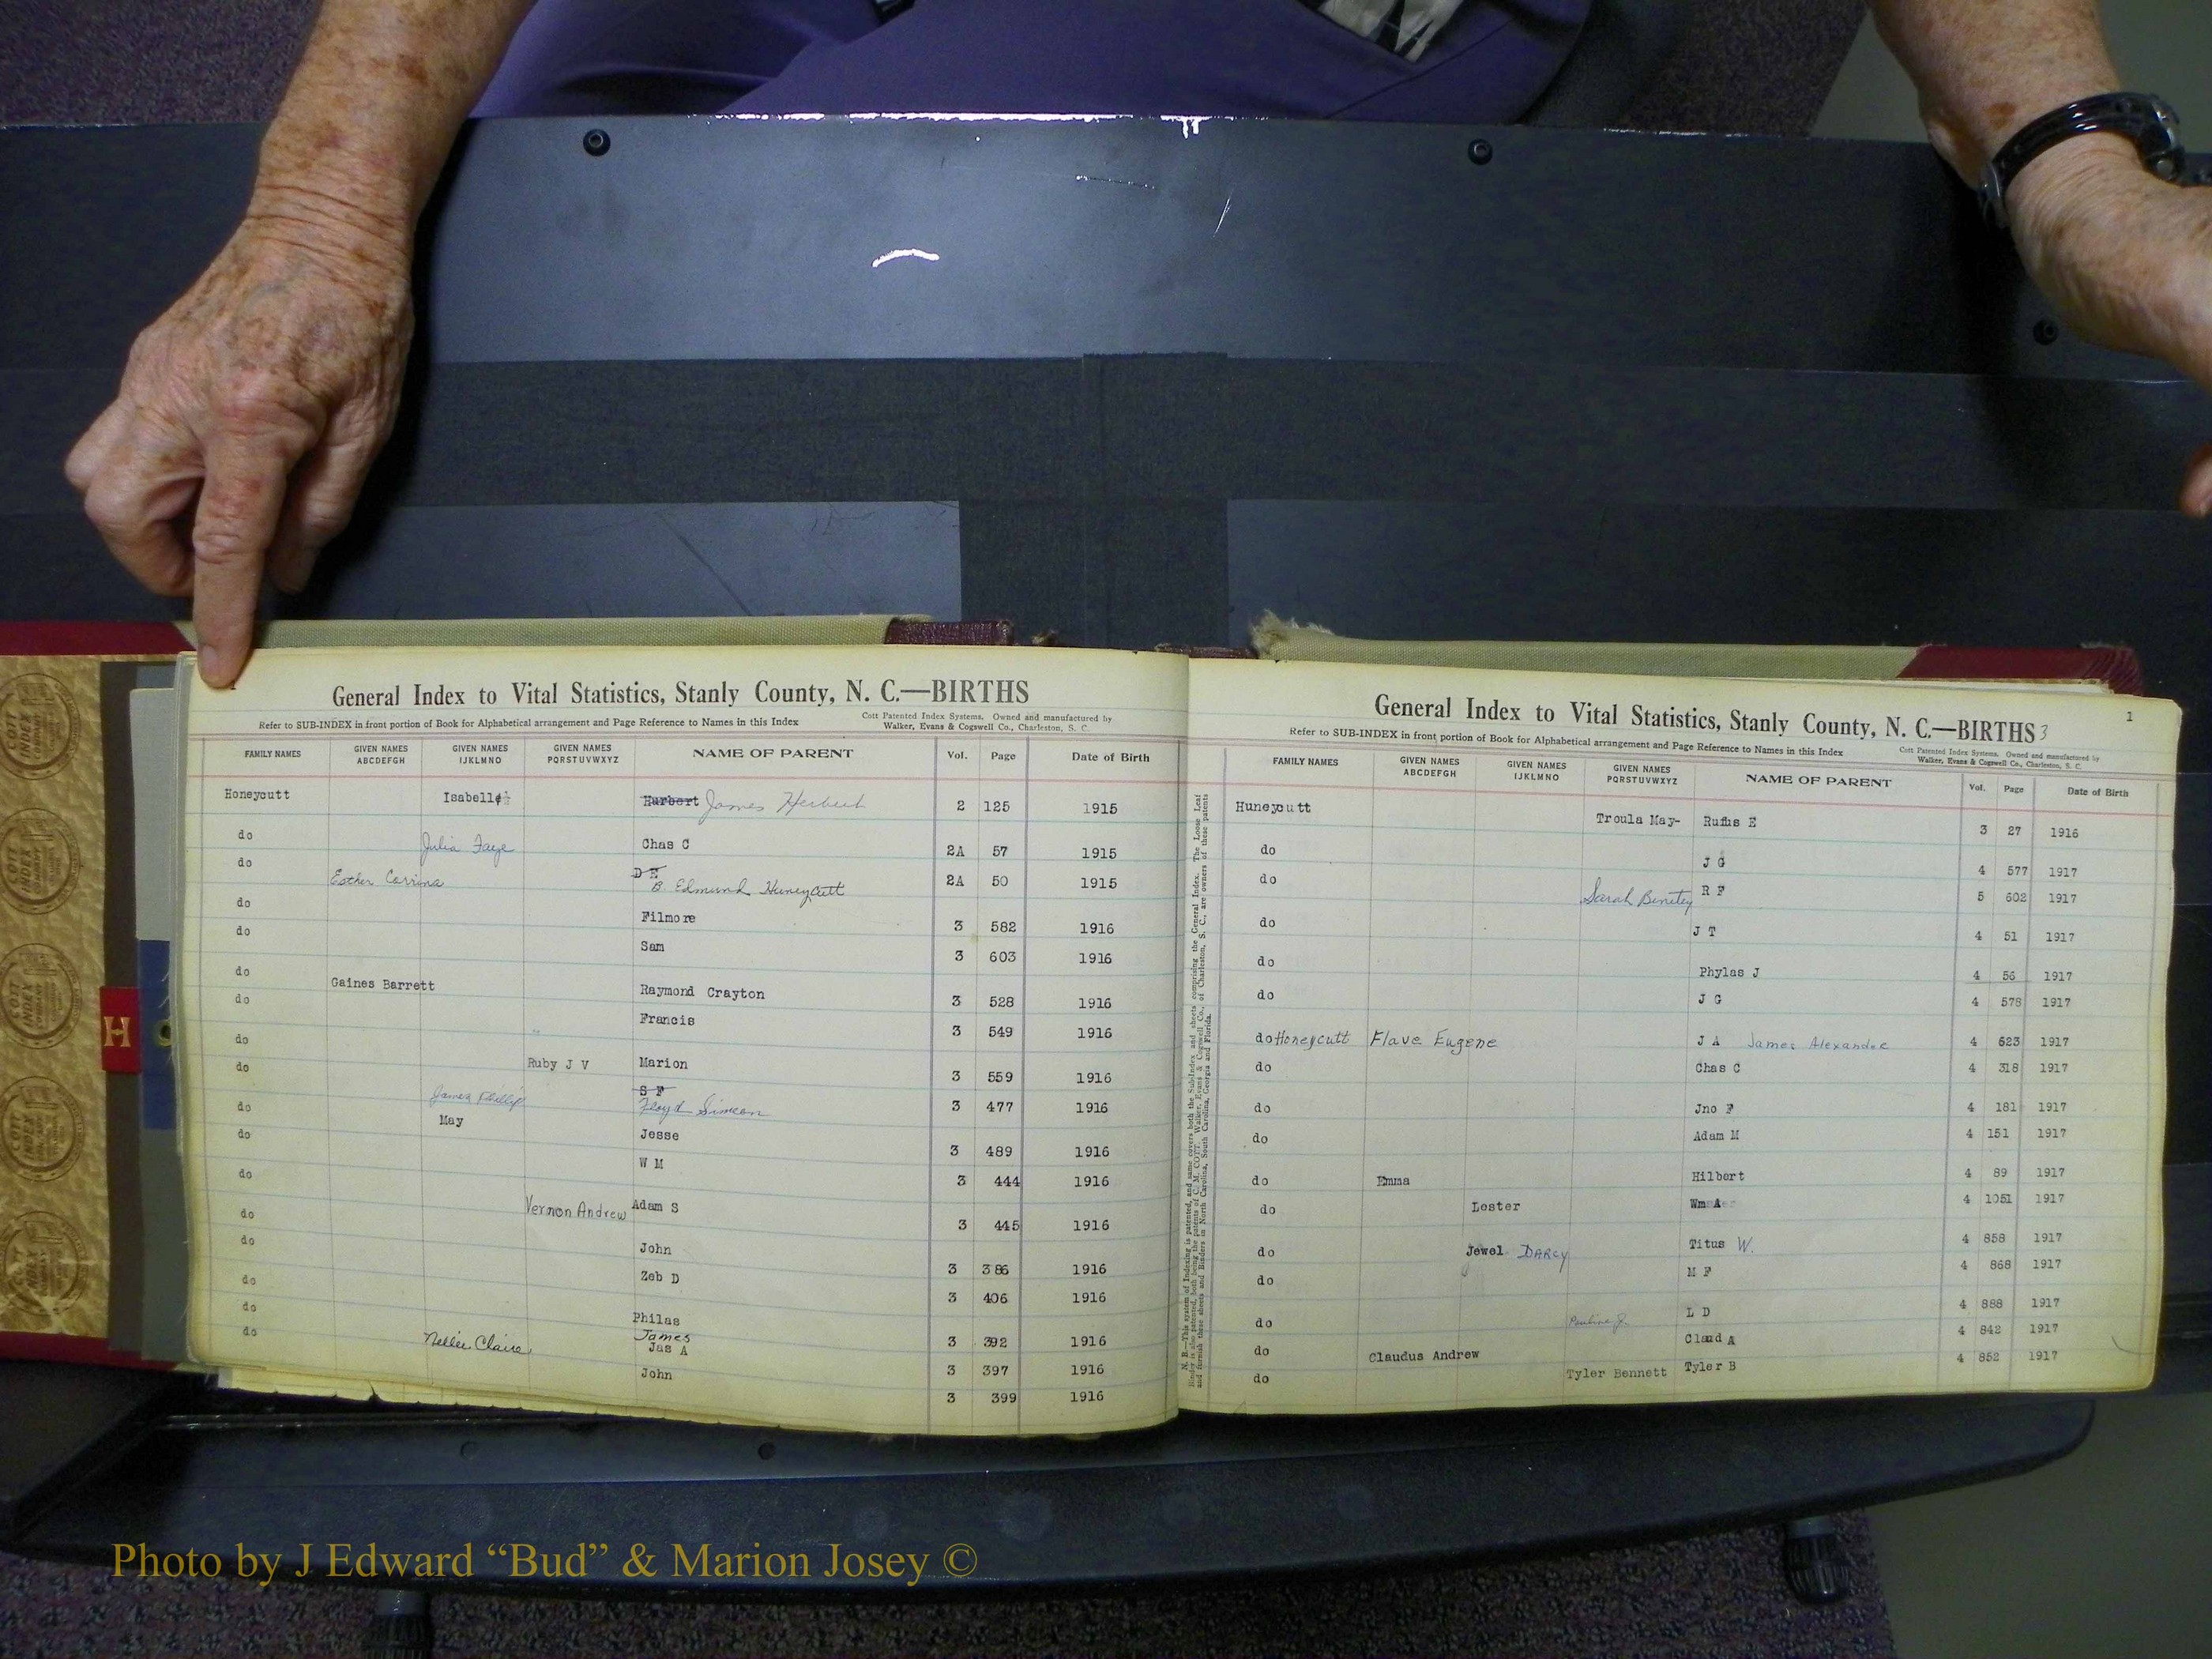 General Index to Vital Statistics, Stanly County, N. C.—BIRTHS
Refer to SUB-INDEX in front portion of Book for Alphabetical arrangement and Page Reference to Names in this Index
Cott Patented Index Systems, Owned and manufactured by
Walker, Evans & Cogswell Co., Charleston, S. C.
FAMILY NAMES GIVEN NAMES ABCDEFGH GIVEN NAMES IJKLMNO GIVEN NAMES PQRSTUVWXYZ NAME OF PARENT Vol. Page Date of Birth
Honeycutt Isabell Hurbert James Herbert 2 125 1915
do Julia Faye Chas C 2A 57 1915
do Esther Corrina D E B. Edmund Huneycutt 2A 50 1915
do Filmore 3 582 1916
do Sam 3 603 1916
do Gaines Barrett Raymond Crayton 3 528 1916
do Francis 3 549 1916
do Ruby J V Marion 3 559 1916
do James Phillip S F Floyd Simeon 3 477 1916
do May Jesse 3 489 1916
do W M 3 444 1916
do Vernon Andrew Adam S 3 445 1916
do John 3 386 1916
do Zeb D 3 406 1916
do Philas 3 392 1916
do Nellie Claire James Jas A 3 397 1916
do John 3 399 1916
General Index to Vital Statistics, Stanly County, N. C.—BIRTHS 3
1
Refer to SUB-INDEX in front portion of Book for Alphabetical arrangement and Page Reference to Names in this Index
Cott Patented Index Systems, Owned and manufactured by
Walker, Evans & Cogswell Co., Charleston, S. C.
FAMILY NAMES GIVEN NAMES ABCDEFGH GIVEN NAMES IJKLMNO GIVEN NAMES PQRSTUVWXYZ NAME OF PARENT Vol. Page Date of Birth
Huneycutt Troula May- Rufus E 3 27 1916
do J G 4 577 1917
do Sarah R F 5 602 1917
do J T 4 51 1917
do Phylas J 4 56 1917
do J G 4 578 1917
do Honeycutt Flave Eugene J A James Alexander 4 623 1917
do Chas C 4 318 1917
do Jno F 4 181 1917
do Adam M 4 151 1917
do Emma Hilbert 4 89 1917
do Lester Wm A 4 1051 1917
do Jewel DARCY Titus W. 4 858 1917
do M F 4 868 1917
do Pauline J. L D 4 888 1917
do Claudus Andrew Claud A 4 842 1917
do Tyler Bennett Tyler B 4 852 1917
H
Photo by J Edward “Bud” & Marion Josey ©